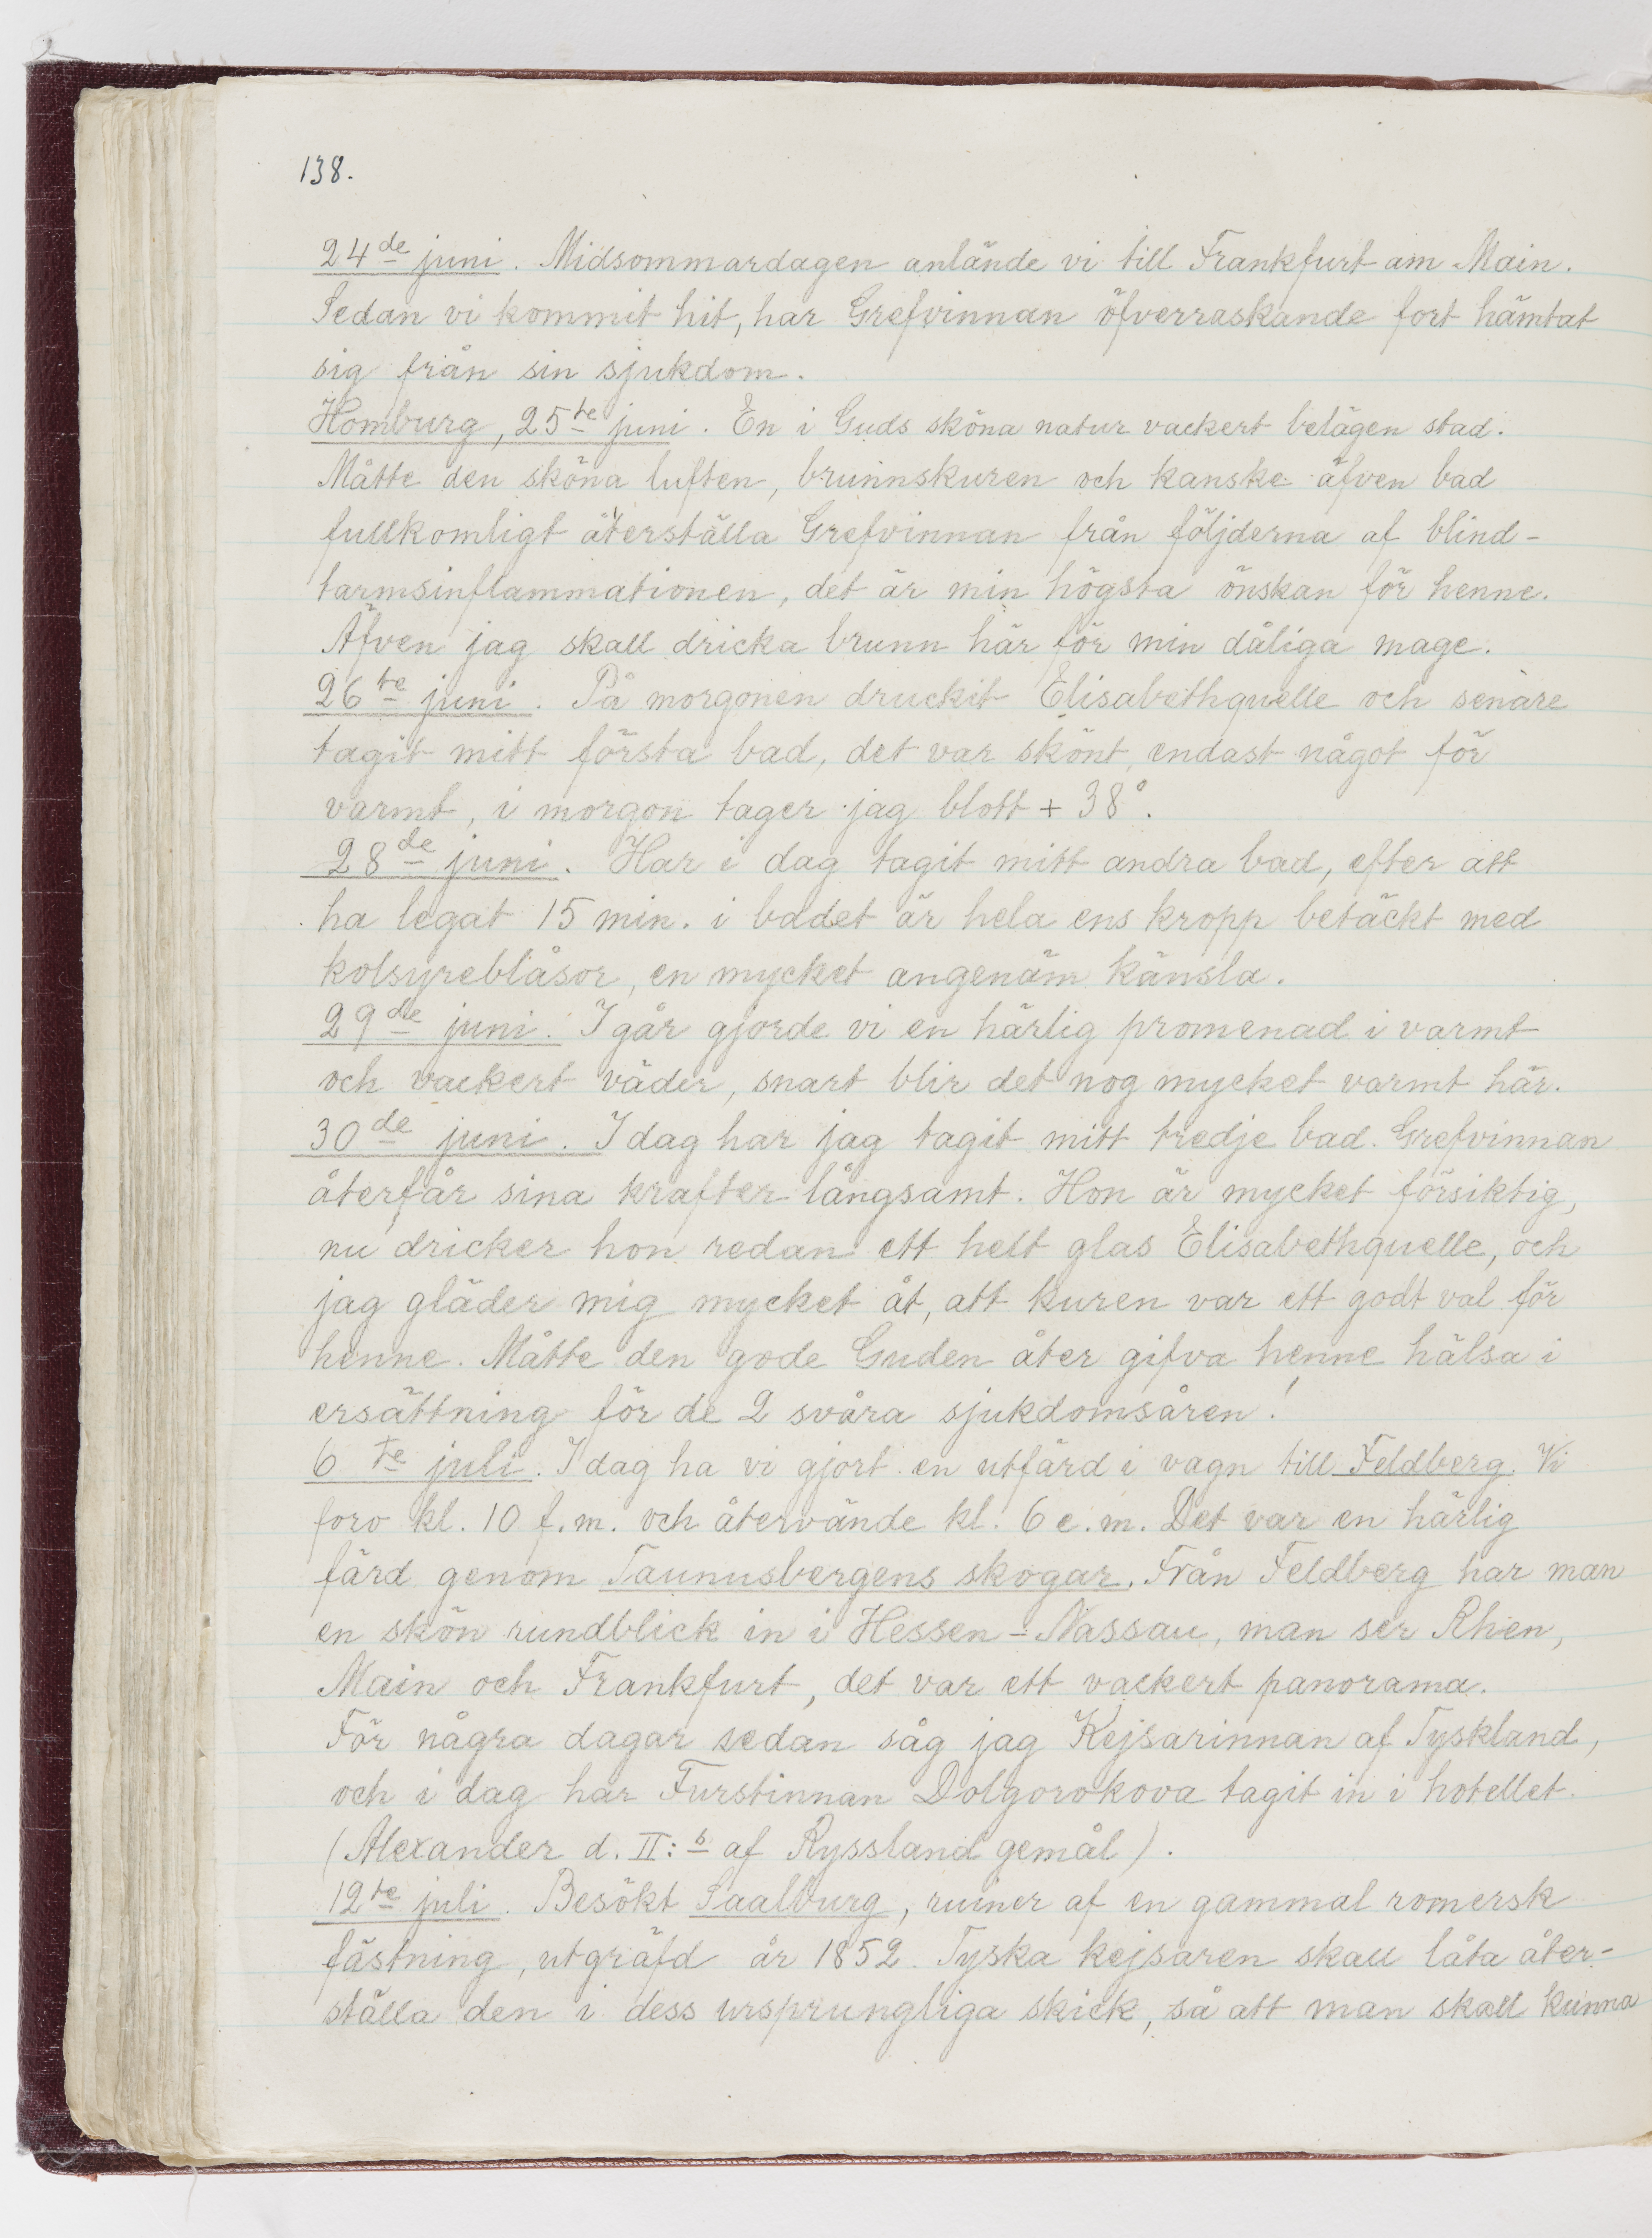 138.
24de juni. Midsommardagen anlände vi till Frankfurt am Main.
Sedan vi kommit hit, har Grefvinnan öfverraskande fort hämtat
sig från sin sjukdom.
Homburg, 25te juni. En i Guds sköna natur vackert belägen stad.
Måtte den sköna luften, brunnskuren och kanske äfven bad
fullkomligt återställa Grefvinnan från följderna af blind-
tarmsinflammationen, det är min högsta önskan för henne.
Äfven jag skall dricka brunn här för min dåliga mage.
26te juni. På morgonen druckit Elisabethquelle och senare
tagit mitt första bad, det var skönt, endast något för
varmt, i morgon tager jag blott + 38°.
28de juni. Har i dag tagit mitt andra bad, efter att
ha legat 15 min. i badet är hela ens kropp betäckt med
kolsyreblåsor, en mycket angenäm känsla.
29de juni. I går gjorde vi en härlig promenad i varmt
och vackert väder, snart blir det nog mycket varmt här.
30de juni. I dag har jag tagit mitt tredje bad. Grefvinnan
återfår sina krafter långsamt. Hon är mycket försiktig,
nu dricker hon redan ett helt glas Elisabethquelle, och
jag gläder mig mycket åt, att kuren var ett godt val för
henne. Måtte den gode Guden åter gifva henne hälsa i
ersättning för de 2 svåra sjukdomsåren!
6te juli. I dag ha vi gjort en utfärd i vagn till Feldberg. Vi
foro kl. 10 f.m. och återvände kl. 6 e.m. Det var en härlig
färd genom Taunusbergens skogar. Från Feldberg har man
en skön rundblick in i Hessen-Nassau, man ser Rhen,
Main och Frankfurt, det var ett vackert panorama.
För några dagar sedan såg jag Kejsarinnan af Tyskland,
och i dag har Furstinnan Dolgorokova tagit in i hotellet.
(Alexander d. II:s af Ryssland gemål).
12te juli. Besökt Saalburg, ruiner af en gammal romersk
fästning, utgräfd år 1852. Tyska kejsaren skall låta åter-
ställa den i dess ursprungliga skick, så att man skall kunna